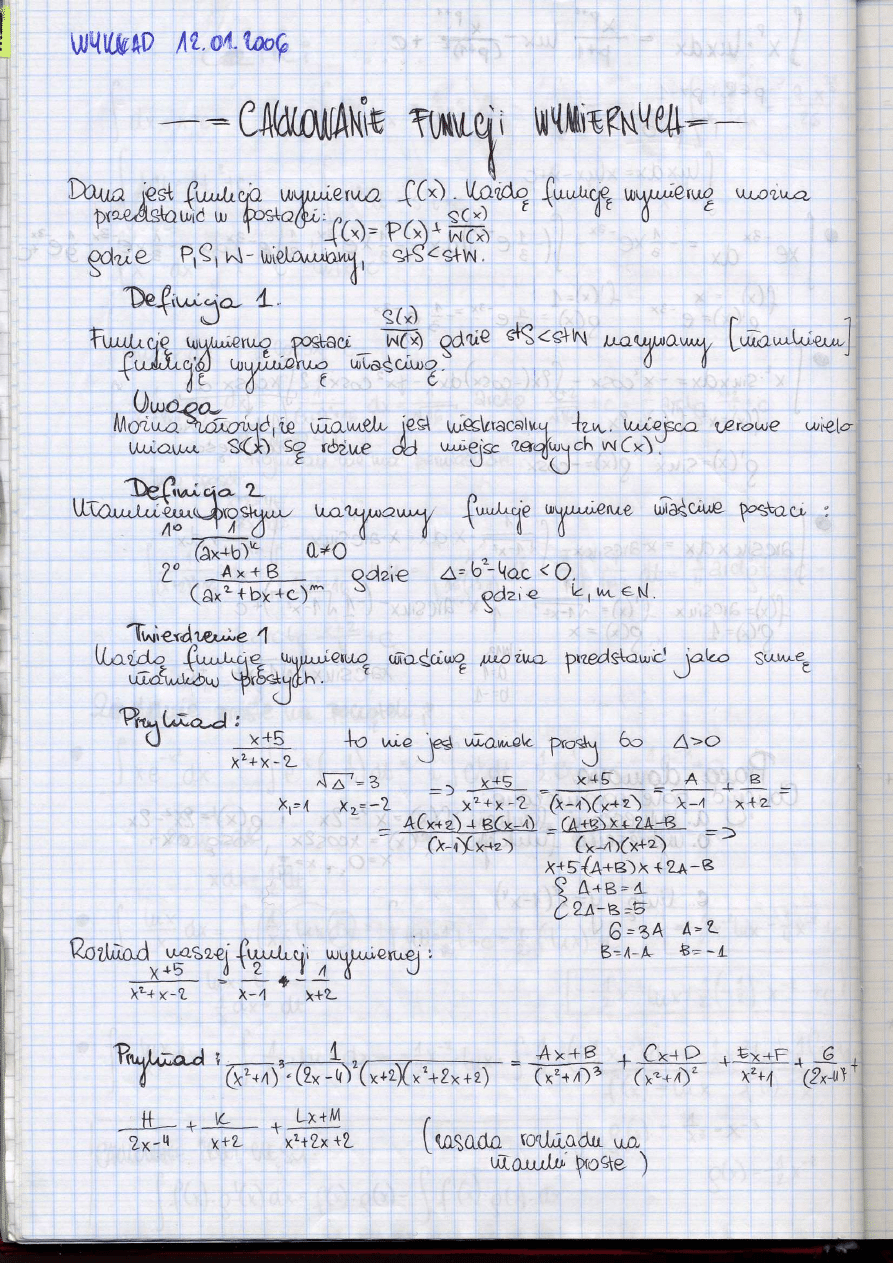 WYKŁAD 12.01.2006
— = CAŁKOWANIE FUNKCJI WYMIERNYCH = —
Dana jest funkcja wymierna f(x). Każdą funkcję wymierną można
przedstawić w postaci:
f(x) = P(x) + S(x)/W(x)
gdzie P, S, W - wielomiany, stS < stW.
Definicja 1.
Funkcję wymierną postaci S(x)/W(x) gdzie stS < stW nazywamy [ułamkiem]
funkcją wymierną właściwą.
Uwaga
Można założyć, że ułamek jest nieskracalny tzn. miejsca zerowe wielo
mianu S(x) są różne od miejsc zerowych W(x).
Definicja 2
Ułamkiem prostym nazywamy funkcje wymierne właściwe postaci :
1° 1/(ax+b)^k a≠0
2° (Ax+B)/(ax²+bx+c)^m gdzie Δ=b²-4ac < 0,
gdzie k, m ∈ N.
Twierdzenie 1
Każdą funkcję wymierną właściwą można przedstawić jako sumę
ułamków prostych.
Przykład :
(x+5)/(x²+x-2) to nie jest ułamek prosty bo Δ>0
√Δ = 3 => (x+5)/(x²+x-2) = (x+5)/((x-1)(x+2)) = A/(x-1) + B/(x+2) =
x₁=1 x₂=-2
= (A(x+2)+B(x-1))/((x-1)(x+2)) = ((A+B)x+2A-B)/((x-1)(x+2)) =>
x+5=(A+B)x+2A-B
{ A+B=1
2A-B=5
6=3A A=2
B=1-A B=-1
Rozkład naszej funkcji wymiernej :
(x+5)/(x²+x-2) = 2/(x-1) - 1/(x+2)
Przykład : 1/((x²+1)³·(2x-4)²(x+2)(x²+2x+2)) = (Ax+B)/(x²+1)³ + (Cx+D)/(x²+1)² + (Ex+F)/(x²+1) + G/(2x-4)² +
H/(2x-4) + K/(x+2) + (Lx+M)/(x²+2x+2) (zasada rozkładu na
ułamki proste)